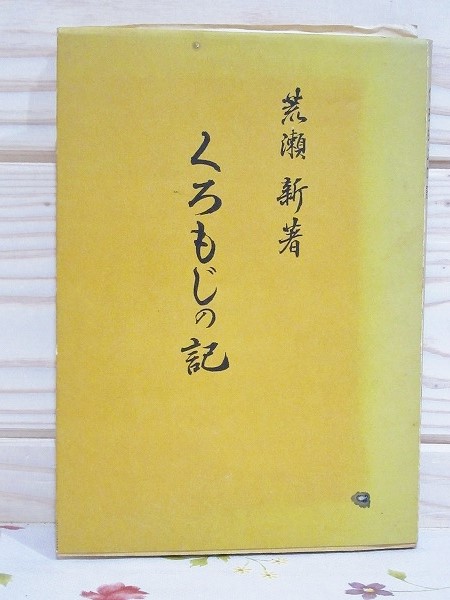 荒瀬 新著
くろもじの記